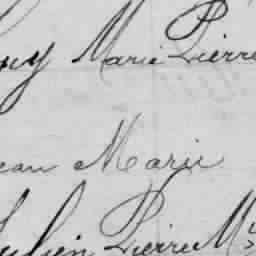 Marie Pierre
Jean Marie
Julien Pierre M